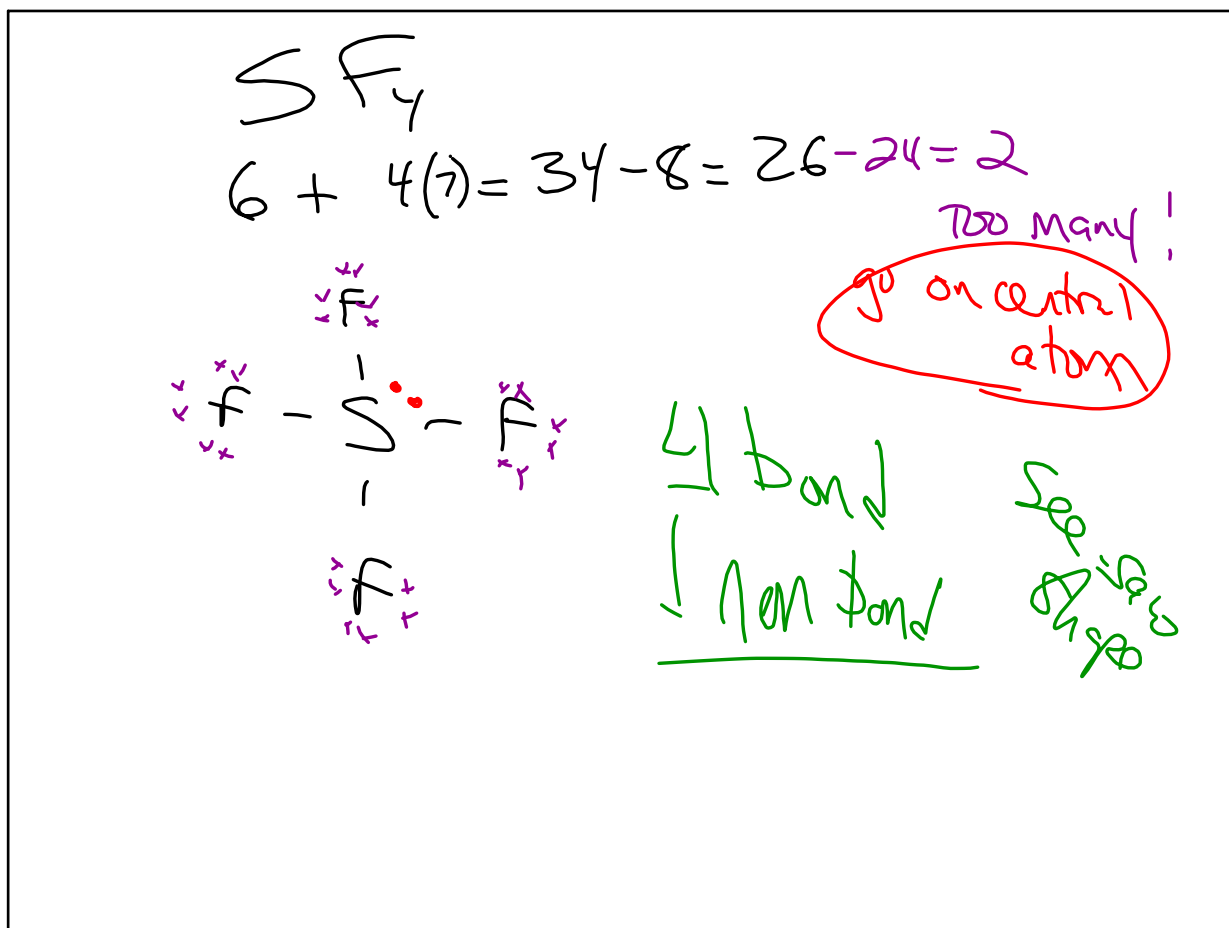 SF4
6 + 4(7) = 34 - 8 = 26 - 24 = 2
Too many!
go on central
atom
F
F - S - F
F
4 bond
1 Non bond
See